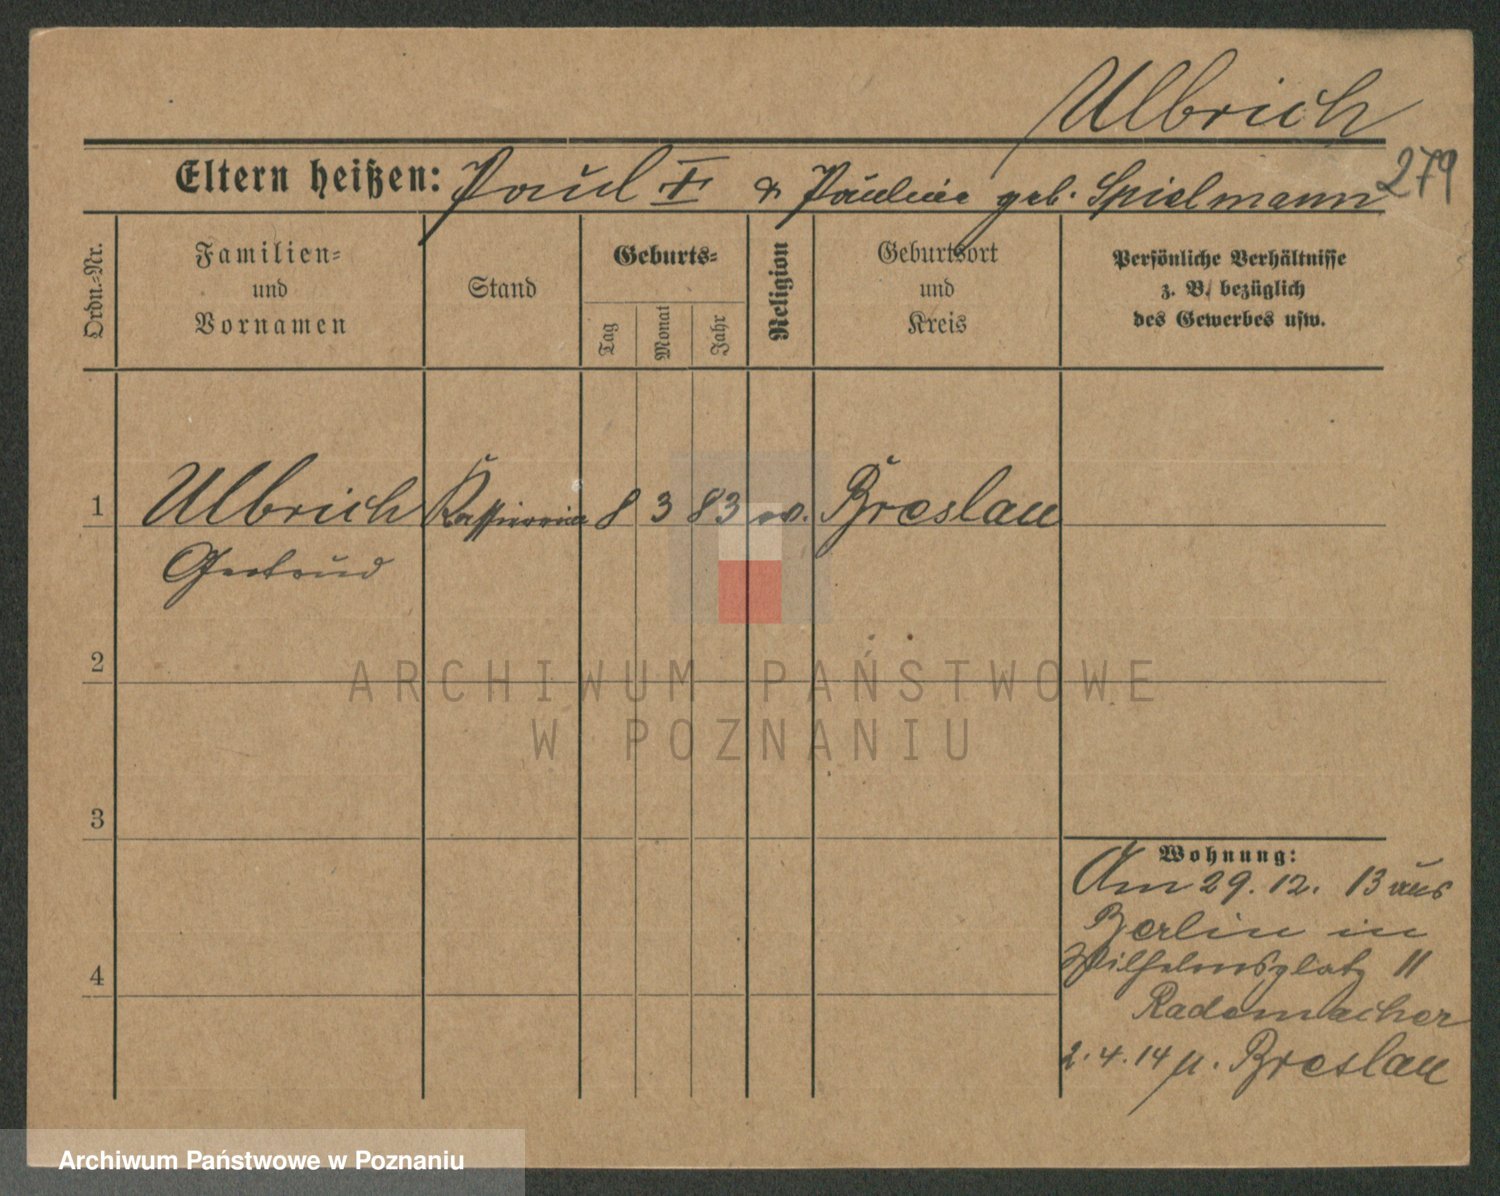 Ulbrich
279
Eltern heißen: Paul † & Pauline geb. Spielmann
Ordn.-Nr.
Familien-
und
Vornamen
Stand
Geburts-
Tag
Monat
Jahr
Religion
Geburtsort
und
Kreis
Persönliche Verhältnisse
z. B. bezüglich
des Gewerbes usw.
1 Ulbrich Kassiererin 8 3 83 ev. Breslau
Gertrud
2
ARCHIWUM PAŃSTWOWE
W POZNANIU
3
Wohnung:
Am 29. 12. 13 aus
Berlin in
Wilhelmsplatz 11
Rademacher
4
2. 4. 14 n. Breslau
Archiwum Państwowe w Poznaniu